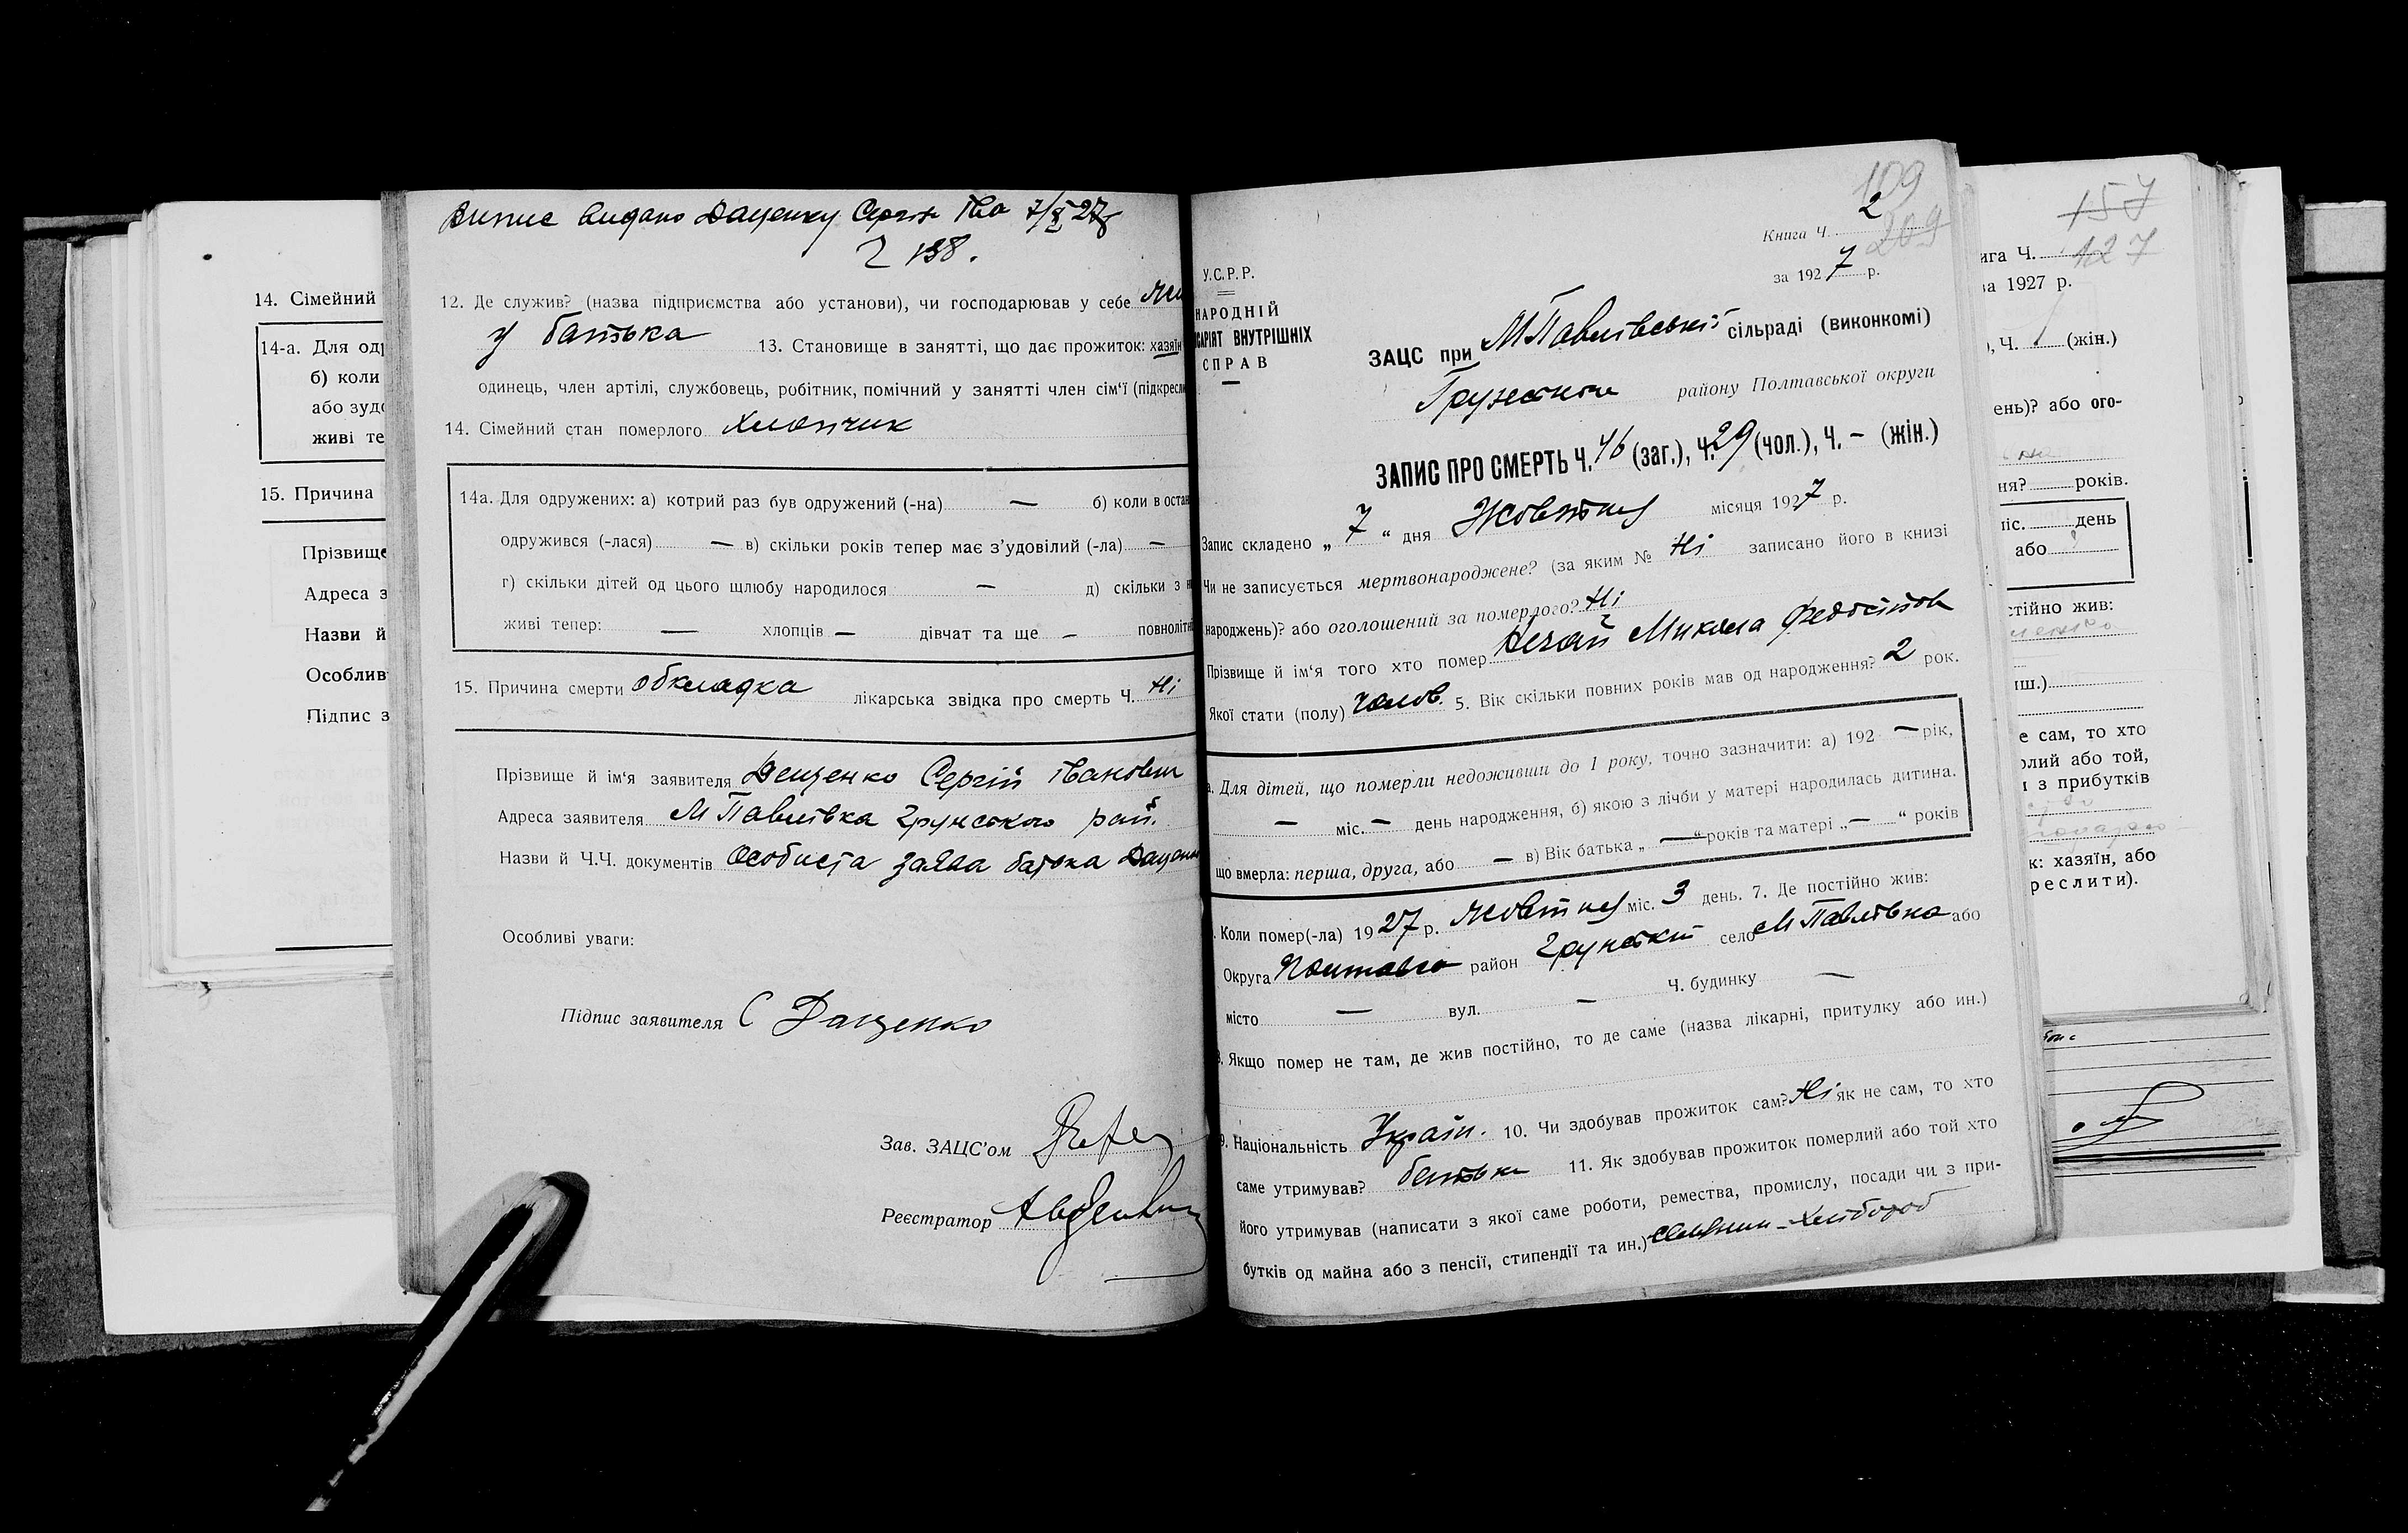 14. Сімейний
14-а. Для од
б) коли
або зудо
живі те
15. Причина
Прізвище
Адреса з
Назви й
Особлив
Підпис з
Випис видано Даценку Сергію Іва 7/X 27р
2 138.
12. Де служив? (назва підприємства або установи), чи господарював у себе
у батька 13. Становище в занятті, що дає прожиток: хазяїн
одинець, член артілі, службовець, робітник, помічний у занятті член сім'ї (підкресли
14. Сімейний стан померлого хлопчик
14а. Для одружених: а) котрий раз був одружений (-на) — б) коли в остан
одружився (-лася) — в) скільки років тепер має з'удовілий (-ла) —
г) скільки дітей од цього шлюбу народилося — д) скільки з н
живі тепер: — хлопців — дівчат та ще — повноліт
15. Причина смерти обкладка лікарська звідка про смерть Ч. Ні
Прізвище й ім'я заявителя Даценко Сергій Іванович
Адреса заявителя М Павлівка Грунського рай.
Назви й Ч.Ч. документів Особиста заява батька Даценк
Особливі уваги:
Підпис заявителя С Даценко
Зав. ЗАЦС'ом
Реєстратор
109
Книга Ч. 2
209
за 1927 р.
У.С.Р.Р.
НАРОДНІЙ
САРІЯТ ВНУТРІШНІХ
СПРАВ
ЗАЦС при МПавлівській сільраді (виконкомі)
району Полтавської округи
ЗАПИС ПРО СМЕРТЬ Ч. 46 (заг.), Ч. 29 (чол.), Ч. — (жін.)
Запис складено „ 7 “ дня Жовтня місяця 1927 р.
Чи не записується мертвонароджене? (за яким № Ні записано його в книзі
народжень)? або оголошений за померлого? Ні
Прізвище й ім'я того хто помер Нечай Микола
Якої стати (полу) чолов. 5. Вік скільки повних років мав од народження? 2 рок.
а. Для дітей, що померли недоживши до 1 року, точно зазначити: а) 192 — рік,
— міс. — день народження, б) якою з лічби у матері народилась дитина.
що вмерла: перша, друга, або — в) Вік батька „ — “ років та матері „ — “ років
. Коли помер(-ла) 1927 р. жовтня міс. 3 день. 7. Де постійно жив:
Округа Полтавсь район Грунський село М Павлівка або
місто — вул. — Ч. будинку —
. Якщо помер не там, де жив постійно, то де саме (назва лікарні, притулку або ин.)
9. Національність Україн. 10. Чи здобував прожиток сам? Ні як не сам, то хто
саме утримував? батько 11. Як здобував прожиток померлий або той хто
його утримував (написати з якої саме роботи, ремества, промислу, посади чи з при-
бутків од майна або з пенсії, стипендії та ин.) селянин-хлібороб
157
ига Ч. 127
за 1927 р.
), Ч. (жін.)
ень)? або ого-
ня? років.
міс. день
або
стійно жив:
иш.)
е сам, то хто
рлий або той,
и з прибутків
к: хазяїн, або
реслити).